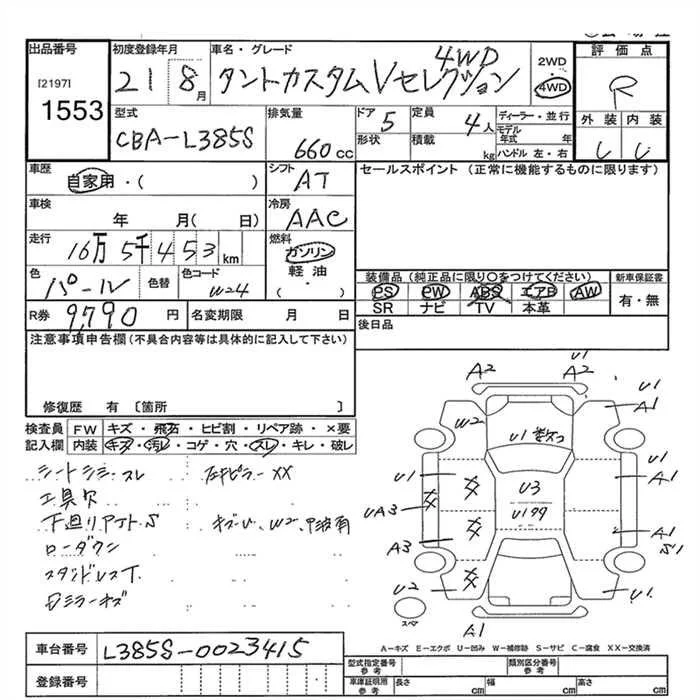 出品番号
[2197]
1553
初度登録年月
21 8月
車名・グレード
タントカスタム Vセレクション 4WD
2WD
4WD
評価点
R
外装 内装
型式
CBA-L385S
排気量
660cc
ドア 5
形状
定員 4人
積載 kg
ディーラー・並行
モデル年式 年
ハンドル 左・右
車歴
自家用・( )
シフト
AT
セールスポイント (正常に機能するものに限ります)
車検
年 月( 日)
冷房
AAC
走行
16万5千453km
燃料
ガソリン
軽油・
( )
色
パール
色替
色コード
W24
装備品 (純正品に限り○をつけてください)
PS PW ABS エアB AW
SR ナビ TV 本革
新車保証書
有・無
R券
9,790 円
名変期限 月 日
後日品
注意事項申告欄 (不具合内容等は具体的に記入して下さい)
修復歴 有 〔箇所 〕
検査員記入欄
FW キズ・飛石・ヒビ割・リペア跡・×要
内装 キズ・汚レ・コゲ・穴・スレ・キレ・破レ
シートシミ・スレ
工具欠
下廻りサビト S
キズ・U、W2、
ローダウン
スタッドレスT
Dミラーキズ
A2
A2
U1
U1
A1
W2
U1
U1
A1
U3
UA3
U1
A1
S1
A3
U2
U1
スペア
A1
A-キズ E-エクボ U-凹み W-補修跡 S-サビ C-腐食 XX-交換済
車台番号
L385S-0023415
登録番号
型式指定番号 参考
類別区分番号 参考
車庫証明用 参考
長さ cm
幅 cm
高さ cm